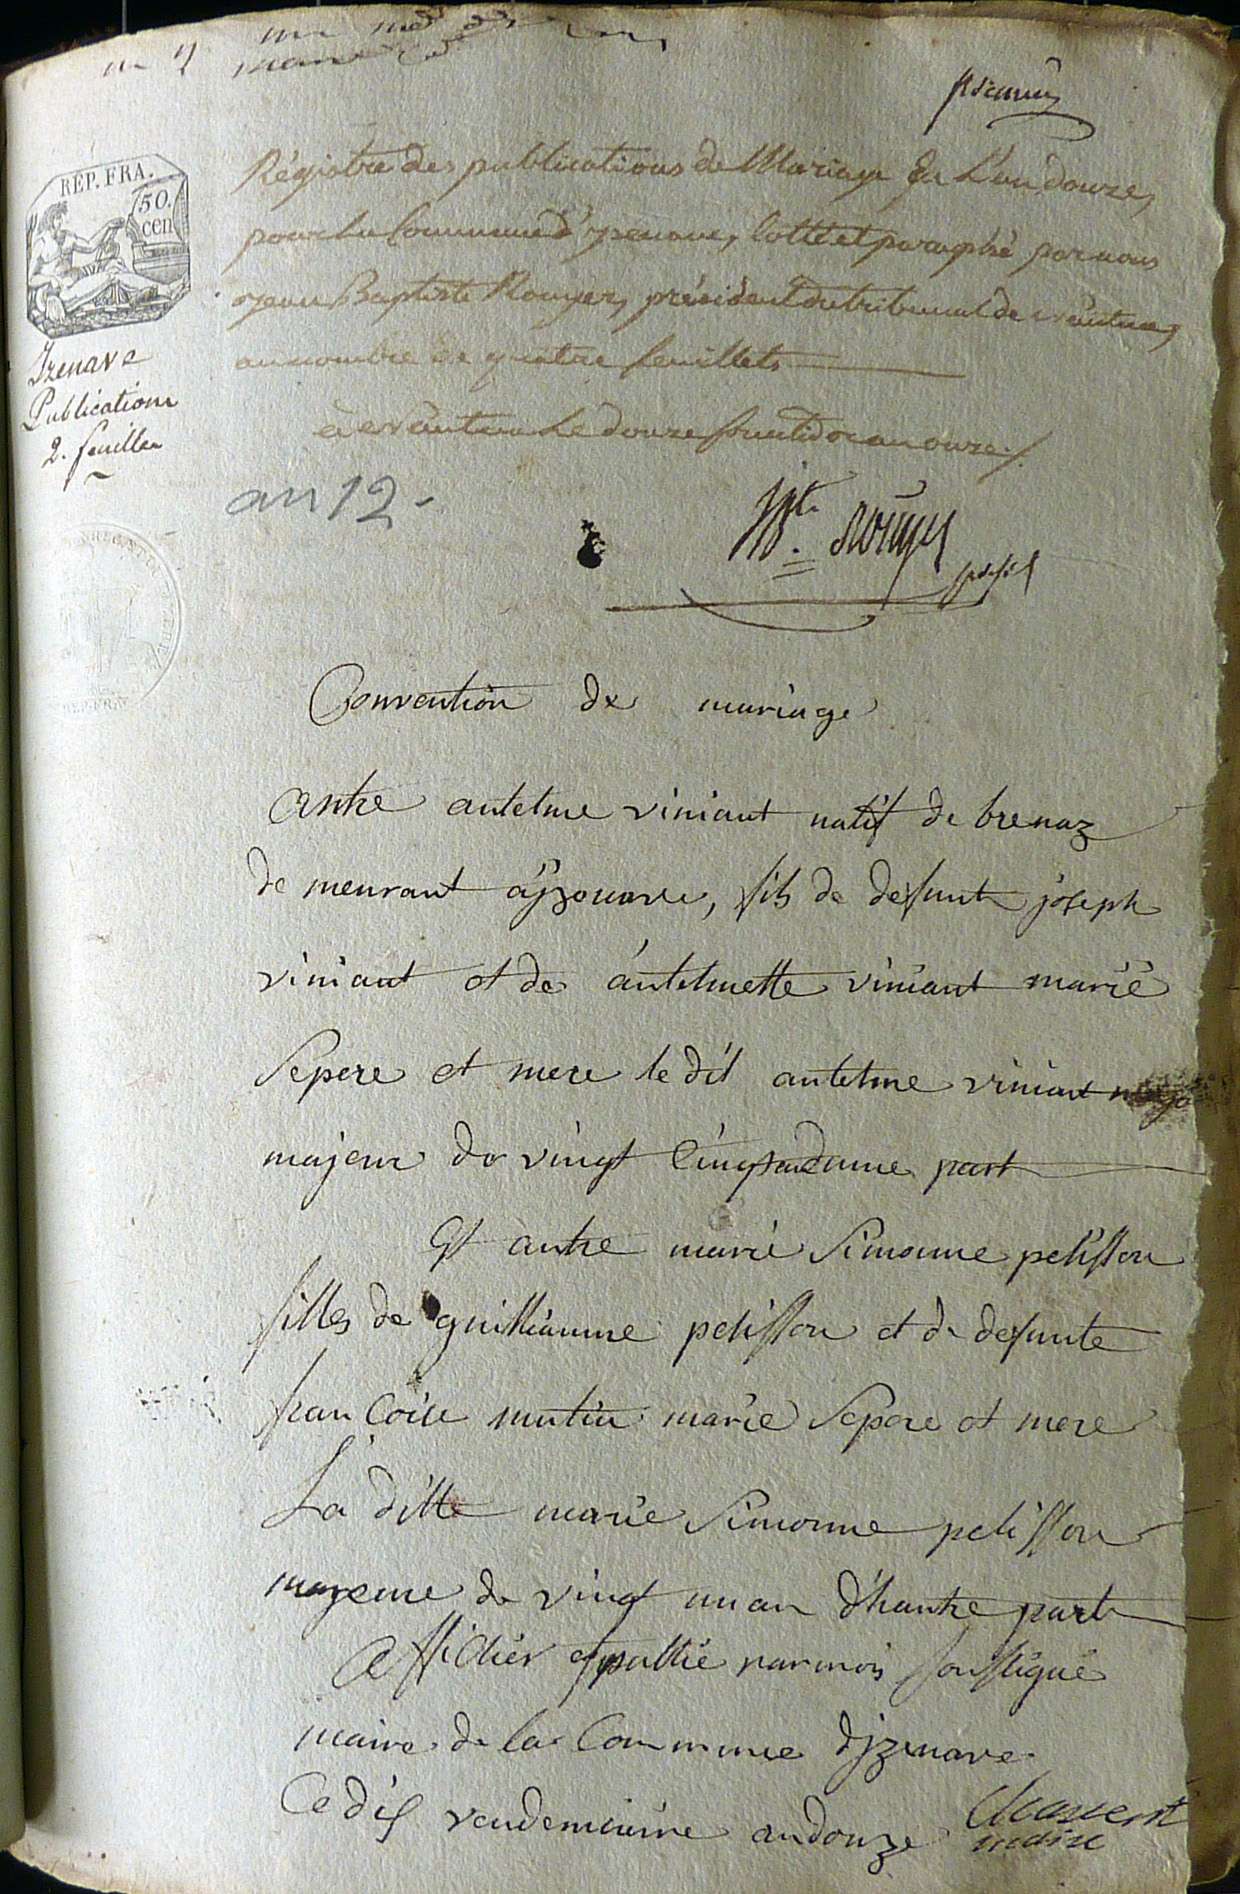 premier
Régistre des publications de Mariage de L'an douze,
pour la Commune d'yzenave, Cotté et paraphé par nous
Jean Baptiste Rouyer, président du tribunal de nantua,
au nombre de quatre feuillets
REP. FRA.
50.
cen
Izenave
Publications
2. feuilles
à nantua Le douze fructidor an onze.
an 12.
Jn Bte Rouyer
présid
REP. FRA
Convention de mariage
antre antelme viniant natif de brenaz
de meurant àyzonave, fils de defunt joseph
viniant et de antelmette viniant mariê
se pere et mere le dit antelme viniant
majeur de vingt Cinq an dune part
Et antre marie Simonne pelisson
filles de guilliaume pelisson et de defunte
fran Coise mutin marie se pere et mere
La ditte marie Simonne pelisson
majeure de vingt un an d'hautre part
Affichér et pullié par moi soussigné
maire de la Commune d'jzenave
Ce dis vendemiaire an douze
maire